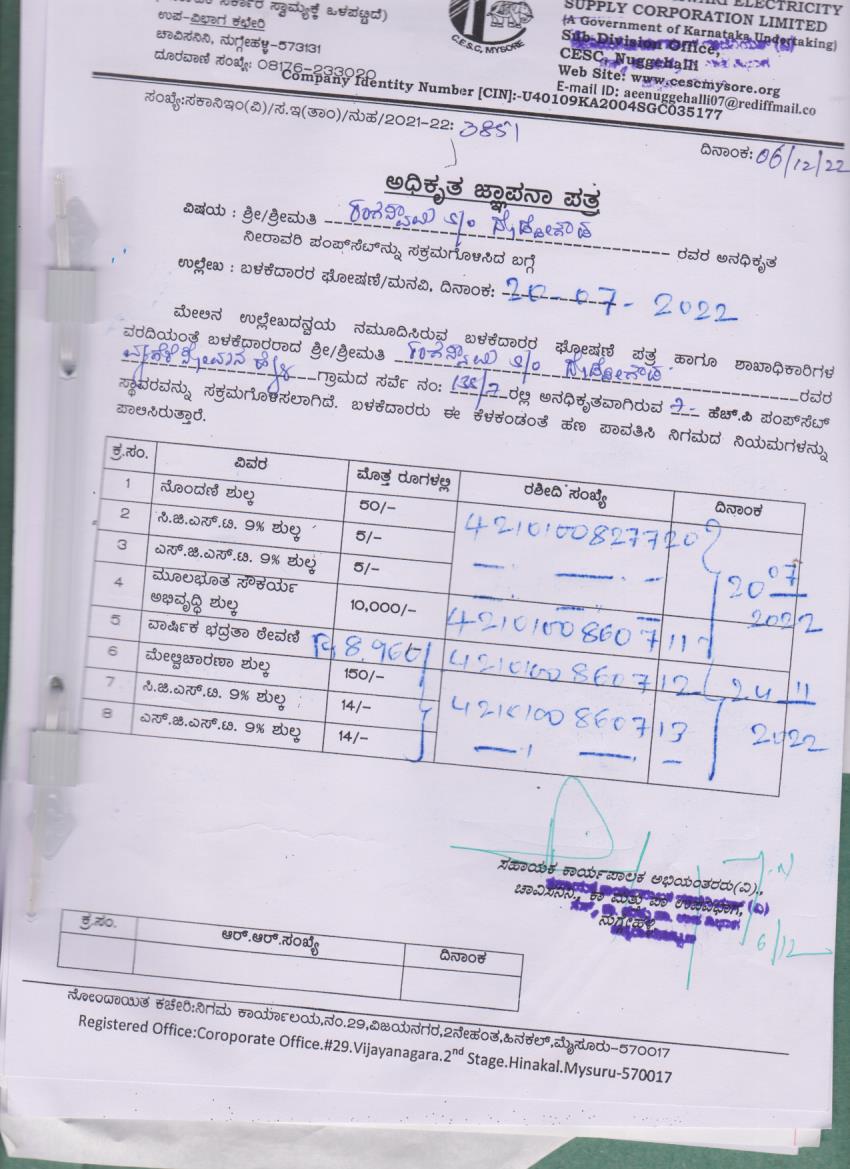 ಸರ್ಕಾರದ ಸ್ವಾಮ್ಯಕ್ಕೆ ಒಳಪಟ್ಟಿದೆ)
ಉಪ-ವಿಭಾಗ ಕಛೇರಿ
ಚಾವಿಸನಿನಿ, ನುಗ್ಗೇಹಳ್ಳಿ-573131
ದೂರವಾಣಿ ಸಂಖ್ಯೆ: 08176-233020
C.E.S.C, MYSORE
ELECTRICITY
SUPPLY CORPORATION LIMITED
(A Government of Karnataka Undertaking)
Sub-Division Office,
CESC, Nuggehalli
Web Site: www.cescmysore.org
E-mail ID: aeenuggehalli07@rediffmail.co
Company Identity Number [CIN]:-U40109KA2004SGC035177
ಸಂಖ್ಯೆ:ಸಕಾನಿಇಂ(ವಿ)/ಸ.ಇ(ತಾಂ)/ನುಹ/2021-22: 3851
ದಿನಾಂಕ: 06/12/22
ಅಧಿಕೃತ ಜ್ಞಾಪನಾ ಪತ್ರ
ವಿಷಯ : ಶ್ರೀ/ಶ್ರೀಮತಿ ರಂಗಸ್ವಾಮಿ s/o ರವರ ಅನಧಿಕೃತ
ನೀರಾವರಿ ಪಂಪ್‌ಸೆಟ್‌ನ್ನು ಸಕ್ರಮಗೊಳಿಸಿದ ಬಗ್ಗೆ
ಉಲ್ಲೇಖ : ಬಳಕೆದಾರರ ಘೋಷಣೆ/ಮನವಿ, ದಿನಾಂಕ: 20-07-2022
ಮೇಲಿನ ಉಲ್ಲೇಖದನ್ವಯ ನಮೂದಿಸಿರುವ ಬಳಕೆದಾರರ ಘೋಷಣೆ ಪತ್ರ ಹಾಗೂ ಶಾಖಾಧಿಕಾರಿಗಳ
ವರದಿಯಂತೆ ಬಳಕೆದಾರರಾದ ಶ್ರೀ/ಶ್ರೀಮತಿ ರಂಗಸ್ವಾಮಿ s/o ರವರ
ಗ್ರಾಮದ ಸರ್ವೆ ನಂ: 135/7 ರಲ್ಲಿ ಅನಧಿಕೃತವಾಗಿರುವ 7- ಹೆಚ್.ಪಿ ಪಂಪ್‌ಸೆಟ್
ಸ್ಥಾವರವನ್ನು ಸಕ್ರಮಗೊಳಿಸಲಾಗಿದೆ. ಬಳಕೆದಾರರು ಈ ಕೆಳಕಂಡಂತೆ ಹಣ ಪಾವತಿಸಿ ನಿಗಮದ ನಿಯಮಗಳನ್ನು
ಪಾಲಿಸಿರುತ್ತಾರೆ.
ಕ್ರ.ಸಂ. ವಿವರ ಮೊತ್ತ ರೂಗಳಲ್ಲಿ ರಶೀದಿ ಸಂಖ್ಯೆ ದಿನಾಂಕ
1 ನೊಂದಣಿ ಶುಲ್ಕ 50/- 4210100827720
2 ಸಿ.ಜಿ.ಎಸ್.ಟಿ. 9% ಶುಲ್ಕ 5/-
3 ಎಸ್.ಜಿ.ಎಸ್.ಟಿ. 9% ಶುಲ್ಕ 5/- 20 07
4 ಮೂಲಭೂತ ಸೌಕರ್ಯ
ಅಭಿವೃದ್ಧಿ ಶುಲ್ಕ 10,000/- 42101008607 11 2022
5 ವಾರ್ಷಿಕ ಭದ್ರತಾ ಠೇವಣಿ Rs 8,960/ 42101008607 12 24 11
6 ಮೇಲ್ವಿಚಾರಣಾ ಶುಲ್ಕ 150/- 42101008607 13 2022
7 ಸಿ.ಜಿ.ಎಸ್.ಟಿ. 9% ಶುಲ್ಕ 14/-
8 ಎಸ್.ಜಿ.ಎಸ್.ಟಿ. 9% ಶುಲ್ಕ 14/-
ಸಹಾಯಕ ಕಾರ್ಯಪಾಲಕ ಅಭಿಯಂತರರು(ವಿ).,
ಚಾವಿಸನಿನಿ., ಕಾ ಮತ್ತು ಪಾ ಉಪವಿಭಾಗ,
ನುಗ್ಗೇಹಳ್ಳಿ
6/12
ಕ್ರ.ಸಂ. ಆರ್.ಆರ್.ಸಂಖ್ಯೆ ದಿನಾಂಕ
ನೋಂದಾಯಿತ ಕಚೇರಿ:ನಿಗಮ ಕಾರ್ಯಾಲಯ,ನಂ.29,ವಿಜಯನಗರ,2ನೇಹಂತ,ಹಿನಕಲ್,ಮೈಸೂರು-570017
Registered Office:Coroporate Office.#29.Vijayanagara.2nd Stage.Hinakal.Mysuru-570017